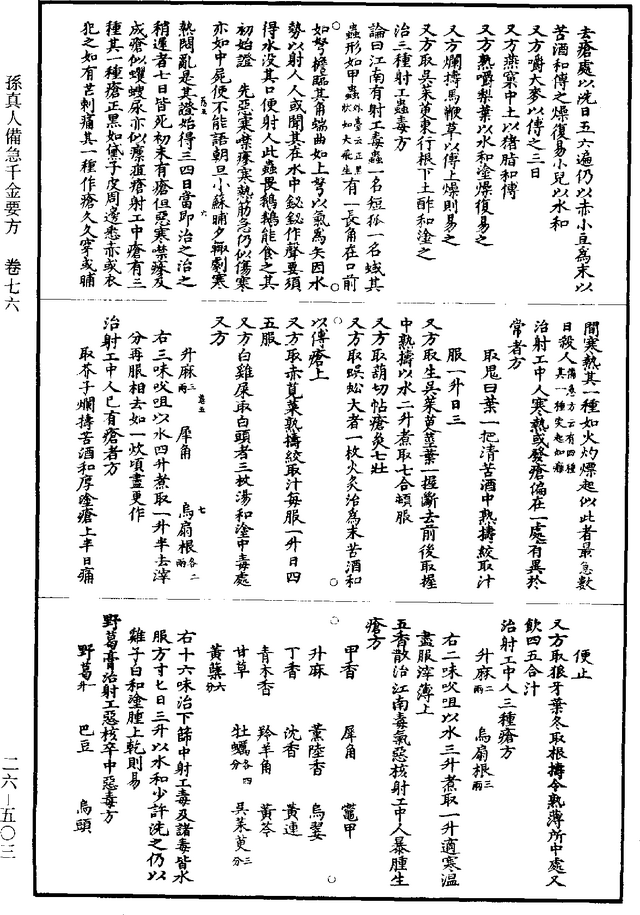 孫真人備急千金要方　卷七六
二六—五〇三
去瘡處以洗日五六遍仍以赤小豆為末以
苦酒和傅之燥復易小兒以水和
又方嚼大麥以傅之三日
又方燕窠中土以猪脂和傅
又方熟嚼梨葉以水和塗燥復易之
又方爛擣馬鞭草以傅上燥則易之
又方取吳茱萸東行根下土酢和塗之
治三種射工蟲毒方
論曰江南有射工毒蟲一名短狐一名蜮其
蟲形如甲蟲有一長角在口前
如弩檐臨其角端曲如上弩以氣為矢因水
勢以射人人或聞其在水中鉍鉍作聲要須
得水没其口便射人此蟲畏鵝鵝能食之其
初始證先惡寒噤瘮寒熱筋急仍似傷寒
亦如中尸便不能語朝旦小蘇晡夕輒劇寒
熱悶亂是其證始得三四日當即治之治之
稍遲者七日皆死初未有瘡但惡寒噤瘮及
成瘡似蠼螋尿亦似瘭疽瘡射工中瘡有三
種其一種瘡正黑如黛子皮周邊悉赤或衣
犯之如有芒刺痛其一種作瘡久久穿或晡
間寒熱其一種如火灼熛起似此者最急數
日殺人
治射工中人寒熱或發瘡偏在一處有異於
常者方
取鬼臼葉一把清苦酒中熟擣絞取汁
服一升日三
又方取生吳茱萸莖葉一握斷去前後取握
中熟擣以水二升煮取七合頓服
又方取葫切怗瘡灸七壯
又方取蜈蚣大者一枚火炙治為末苦酒和
以傅瘡上
又方取赤莧菜熟擣絞取汁每服一升日四
五服
又方白雞屎取白頭者三枚湯和塗中毒處
又方
升麻 犀角 烏扇根各二兩
右三味㕮咀以水四升煮取一升半去滓
分再服相去如一炊頃盡更作
治射工中人已有瘡者方
取芥子爛擣苦酒和厚塗瘡上半日痛
便止
又方取狼牙葉冬取根擣令熟薄所中處又
飲四五合汁
治射工中人三種瘡方
升麻二兩 烏扇根三兩
右二味㕮咀以水三升煮取一升適寒温
盡服滓薄上
五香散治江南毒氣惡核射工中人暴腫生
瘡方
甲香 犀角 鼈甲
升麻 薰陸香 烏翣
丁香 沈香 黃連
青木香 羚羊角 黃芩
甘草 牡蠣各四分 吳茱萸三分
黃蘗六分
右十六味治下篩中射工毒及諸毒皆水
服方寸匕日三并以水和少許洗之仍以
雞子白和塗腫上乾則易
野葛膏治射工惡核卒中惡毒方
野葛 巴豆 烏頭